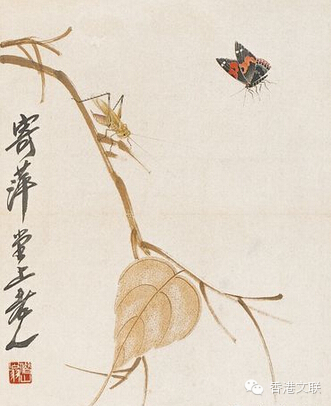 寄萍堂上老人
香港文联